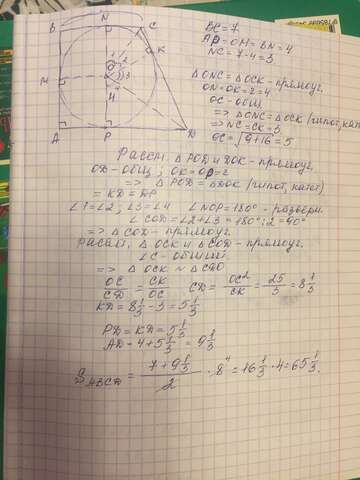 B N C
K
M O
4
A P D
BC = 7
AP = OM = BN = 4
NC = 7-4 = 3
△ONC = △OCK - прямоуг.
ON = OK = r = 4
OC - общ.
⇒ △ONC = △OCK (гипот, кат)
⇒ NC = CK = 3
OC = √9+16 = 5
Рассм. △POD и DOK - прямоуг.
OD - общ; OK = OP = r
⇒ △POD = △DOK (гипот, катет)
⇒ KD = DP
∠1=∠2; ∠3=∠4 ∠NOP = 180° - разверн.
∠COD = ∠2+∠3 = 180°:2 = 90°
⇒ △COD - прямоуг.
Рассм. △OCK и △COD - прямоуг.
∠C - общий
⇒ △OCK ~ △COD
OC/CD = CK/OC CD = OC²/CK = 25/3 = 8 1/3
KD = 8 1/3 - 3 = 5 1/3
PD = KD = 5 1/3
AD = 4 + 5 1/3 = 9 1/3
S ABCD = (7 + 9 1/3)/2 · 8 4 = 16 1/3 · 4 = 65 1/3.